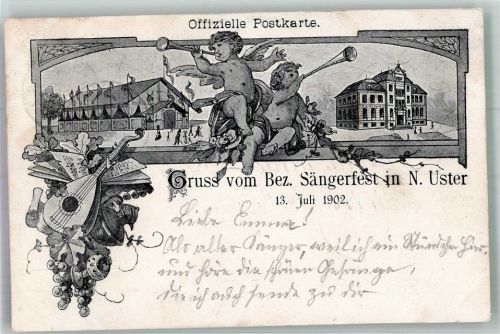 Offizielle Postkarte.
Gruss vom Bez. Sängerfest in N. Uster
13. Juli 1902.
Liebe Emma!
Als alter Sänger, weil ich ein Stündchen hier,
und höre die schönen Gesänge,
die ich auch sende zu dir